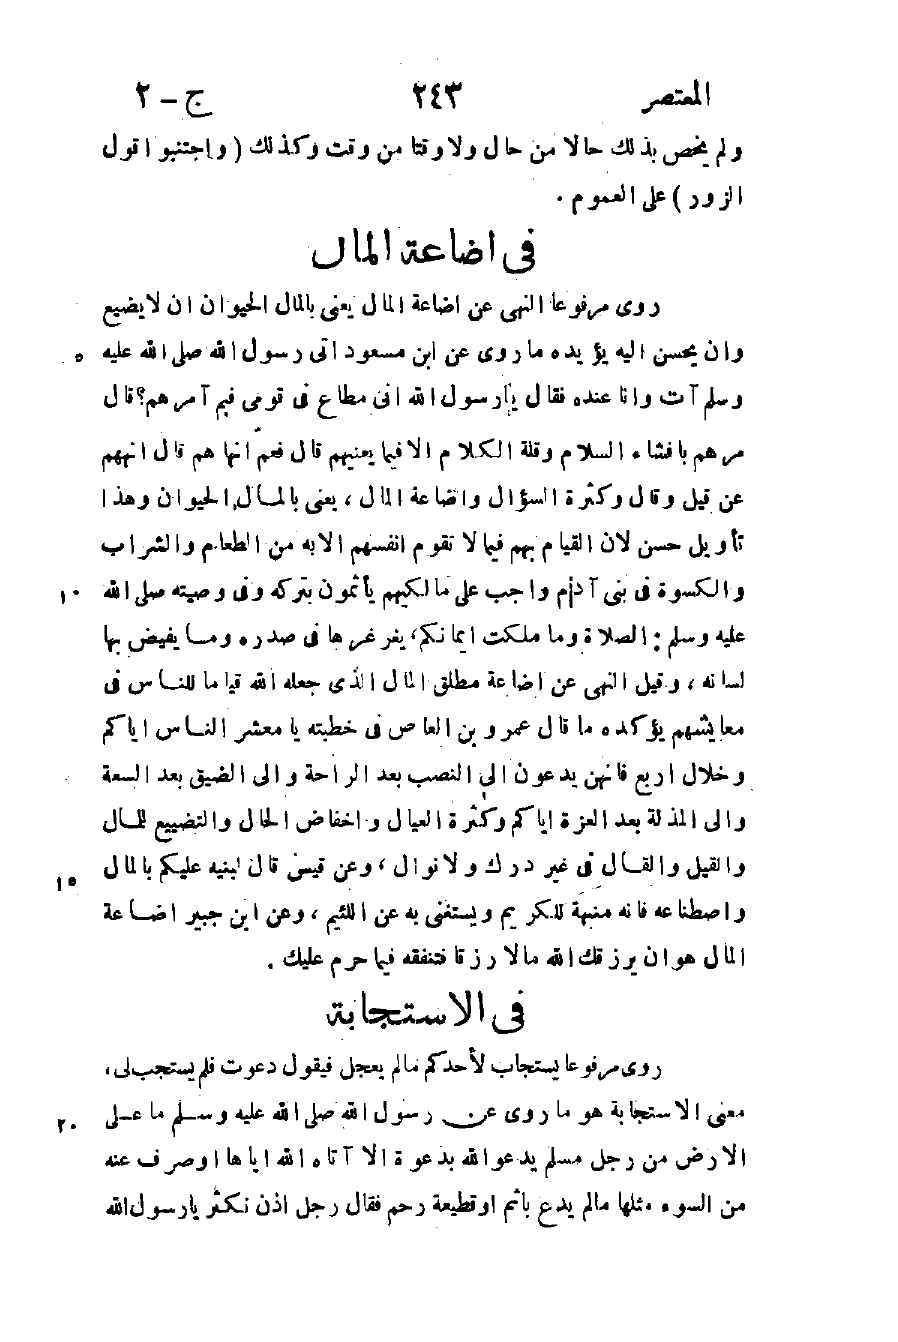 المعتصر ٢٤٣ ج – ٢
ولم يخص بذلك حالا من حال ولا وقتا من وقت وكذلك ( واجتنبوا قول
الزور ) على العموم .
فى اضاعة المال
روى مرفوعا النهى عن اضاعة المال يعنى بالمال الحيوان ان لا يضيع
وان يحسن اليه يؤيده ما روى عن ابن مسعود اتى رسول الله صلى الله عليه ٥
وسلم آت وانا عنده فقال يارسول الله انى مطاع فى قومى فبم آمرهم؟ قال
مرهم بافشاء السلام وقلة الكلام الا فيما يعنيهم قال فعم انها هم قال انههم
عن قيل وقال وكثرة السؤال واضاعة المال ، يعنى بالمال الحيوان وهذا
تأويل حسن لان القيام بهم فيما لا تقوم انفسهم الابه من الطعام والشراب
والكسوة فى بنى آدم واجب على مالكيهم يأثمون بتركه وفى وصيته صلى الله ١٠
عليه وسلم : الصلاة وما ملكت ايمانكم، يفرغرها فى صدره وما يفيض بها
لسانه ، وقيل النهى عن اضاعة مطلق المال الذى جعله الله قياما للناس فى
معايشهم يؤكده ما قال عمرو بن العاص فى خطبته يا معشر الناس اياكم
وخلال اربع فانهن يدعون الى النصب بعد الراحة والى الضيق بعد السعة
والى المذلة بعد العزة اياكم وكثرة العيال واخفاض الحال والتضييع للمال
والقيل والقال فى غير درك ولا نوال ، وعن قيس قال لبنيه عليكم بالمال ١٥
واصطناعه فانه منبهة للكريم ويستغنى به عن اللئيم ، وعن ابن جبير اضاعة
المال هو ان يرزقك الله مالا رزقا فتنفقه فيما حرم عليك .
فى الاستجابة
روى مرفوعا يستجاب لأحدكم مالم يعجل فيقول دعوت فلم يستجب لى ،
معنى الاستجابة هو ما روى عن رسول الله صلى الله عليه وسلم ما على ٢٠
الارض من رجل مسلم يدعو الله بدعوة الا آتاه الله اياها او صرف عنه
من السوء مثلها مالم يدع بأثم او قطيعة رحم فقال رجل اذن نكثر يارسول الله